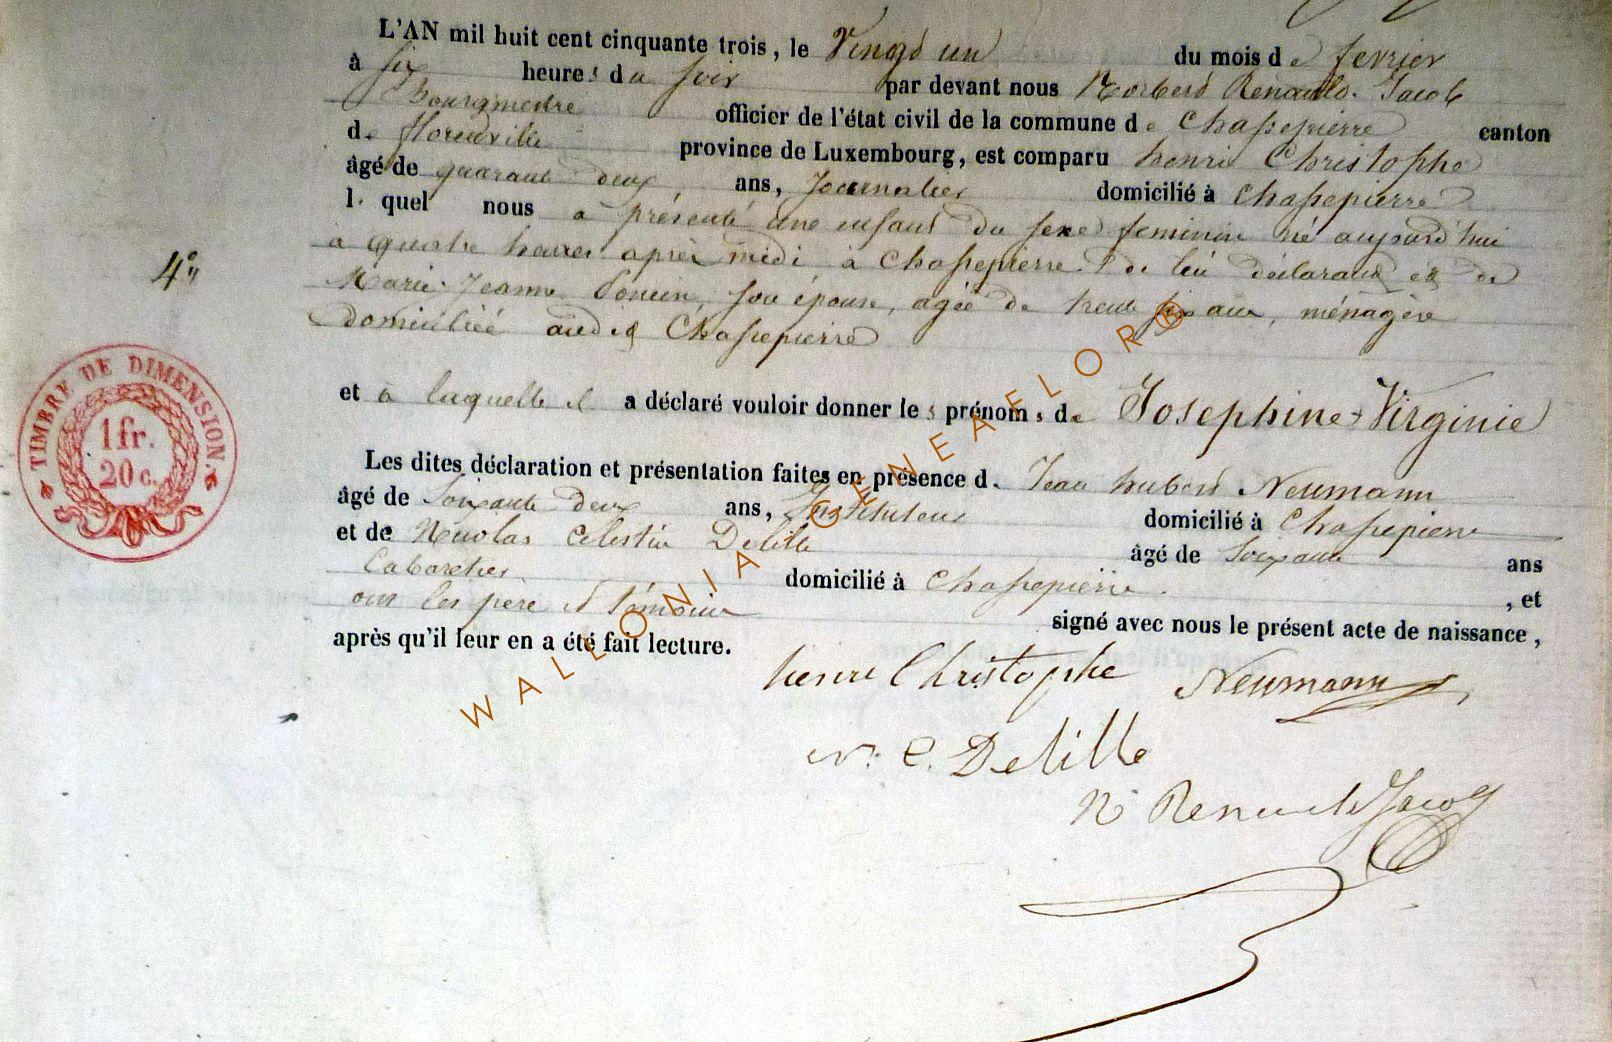 L'AN mil huit cent cinquante trois, le Vingt un du mois de fevrier
à six heures du soir par devant nous Norbert Renauld-Jacob
Bourgmestre officier de l'état civil de la commune de Chassepierre canton
de florenville province de Luxembourg, est comparu henri Christophe
âgé de quarante deux, ans, Journalier domicilié à Chassepierre
l. quel nous a présenté une enfant du sexe feminin né aujourd'hui
à quatre heures après midi à Chassepierre de lui déclarant et de
Marie-Jeanne Poncin, son épouse, agée de trente six ans, ménagère
domiciliée audit Chassepierre
4°
et à laquelle il a déclaré vouloir donner les prénoms de Josephine-Virginie
TIMBRE DE DIMENSION.
1 fr.
20 c.
Les dites déclaration et présentation faites en présence d. Jean hubert Neumann
âgé de Soixante deux ans, Instituteur domicilié à Chassepierre
et de Nicolas Celestin Delille âgé de Soixante ans
Cabaretier domicilié à Chassepierre. , et
ont les pere et témoins signé avec nous le présent acte de naissance,
après qu'il leur en a été fait lecture.
henri Christophe Neumann
N. C. Delille
N Renauld Jacob
WALLONIA GENEAFLOR®